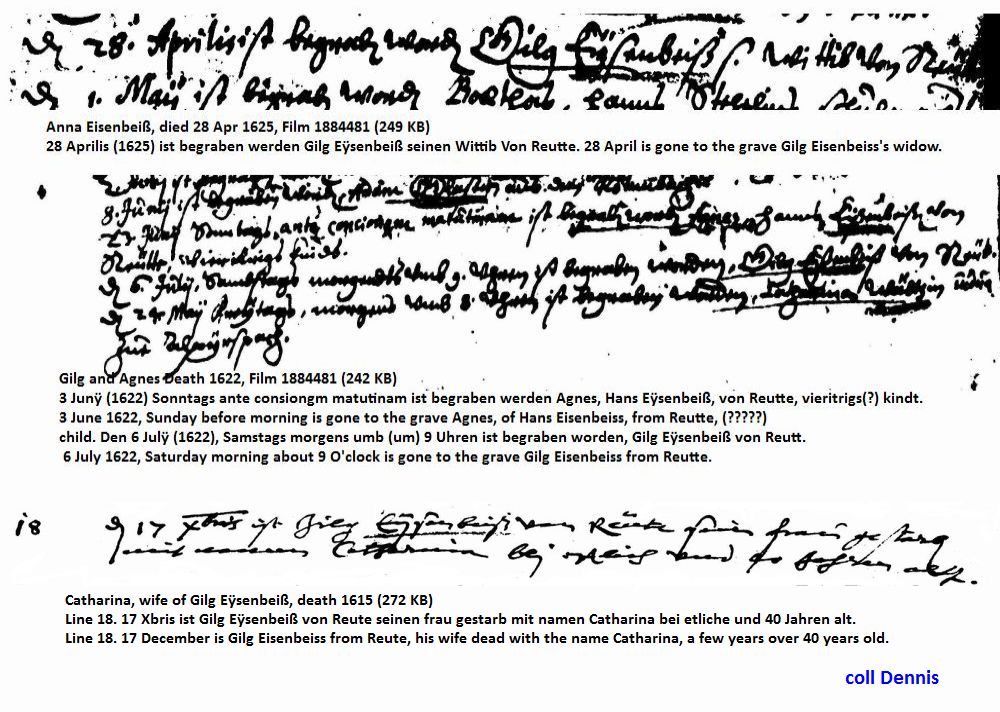 28. Aprilis ist begrab word Gilg Eÿsenbeiß s. Wittib Von
1. Maÿ ist begrab word
Anna Eisenbeiß, died 28 Apr 1625, Film 1884481 (249 KB)
28 Aprilis (1625) ist begraben werden Gilg Eÿsenbeiß seinen Wittib Von Reutte. 28 April is gone to the grave Gilg Eisenbeiss's widow.
8. Junÿ ist begraben Adam
Junÿ Sonntags, ante concionem matutinam ist begrab word Agnes, Hannß Eÿsenbeiß von
Reütte, kindt.
6 Julÿ. Sambstags morgendts umb 9. Uhren ist begraben worden, Gilg Eÿsenbeiß von Reütt.
24. Maÿ morgend umb 8. Uhren ist begraben worden, Catharina
Gilg and Agnes Death 1622, Film 1884481 (242 KB)
3 Junÿ (1622) Sonntags ante consiongm matutinam ist begraben werden Agnes, Hans Eÿsenbeiß, von Reutte, vieritrigs(?) kindt.
3 June 1622, Sunday before morning is gone to the grave Agnes, of Hans Eisenbeiss, from Reutte, (?????)
child. Den 6 Julÿ (1622), Samstags morgens umb (um) 9 Uhren ist begraben worden, Gilg Eÿsenbeiß von Reutt.
6 July 1622, Saturday morning about 9 O'clock is gone to the grave Gilg Eisenbeiss from Reutte.
18 17 Xbris ist Gilg Eÿsenbeiß von Reute sein frau gestarb
mit namen Catharina bej etlich und 40 Jahren alt.
Catharina, wife of Gilg Eÿsenbeiß, death 1615 (272 KB)
Line 18. 17 Xbris ist Gilg Eÿsenbeiß von Reute seinen frau gestarb mit namen Catharina bei etliche und 40 Jahren alt.
Line 18. 17 December is Gilg Eisenbeiss from Reute, his wife dead with the name Catharina, a few years over 40 years old.
coll Dennis